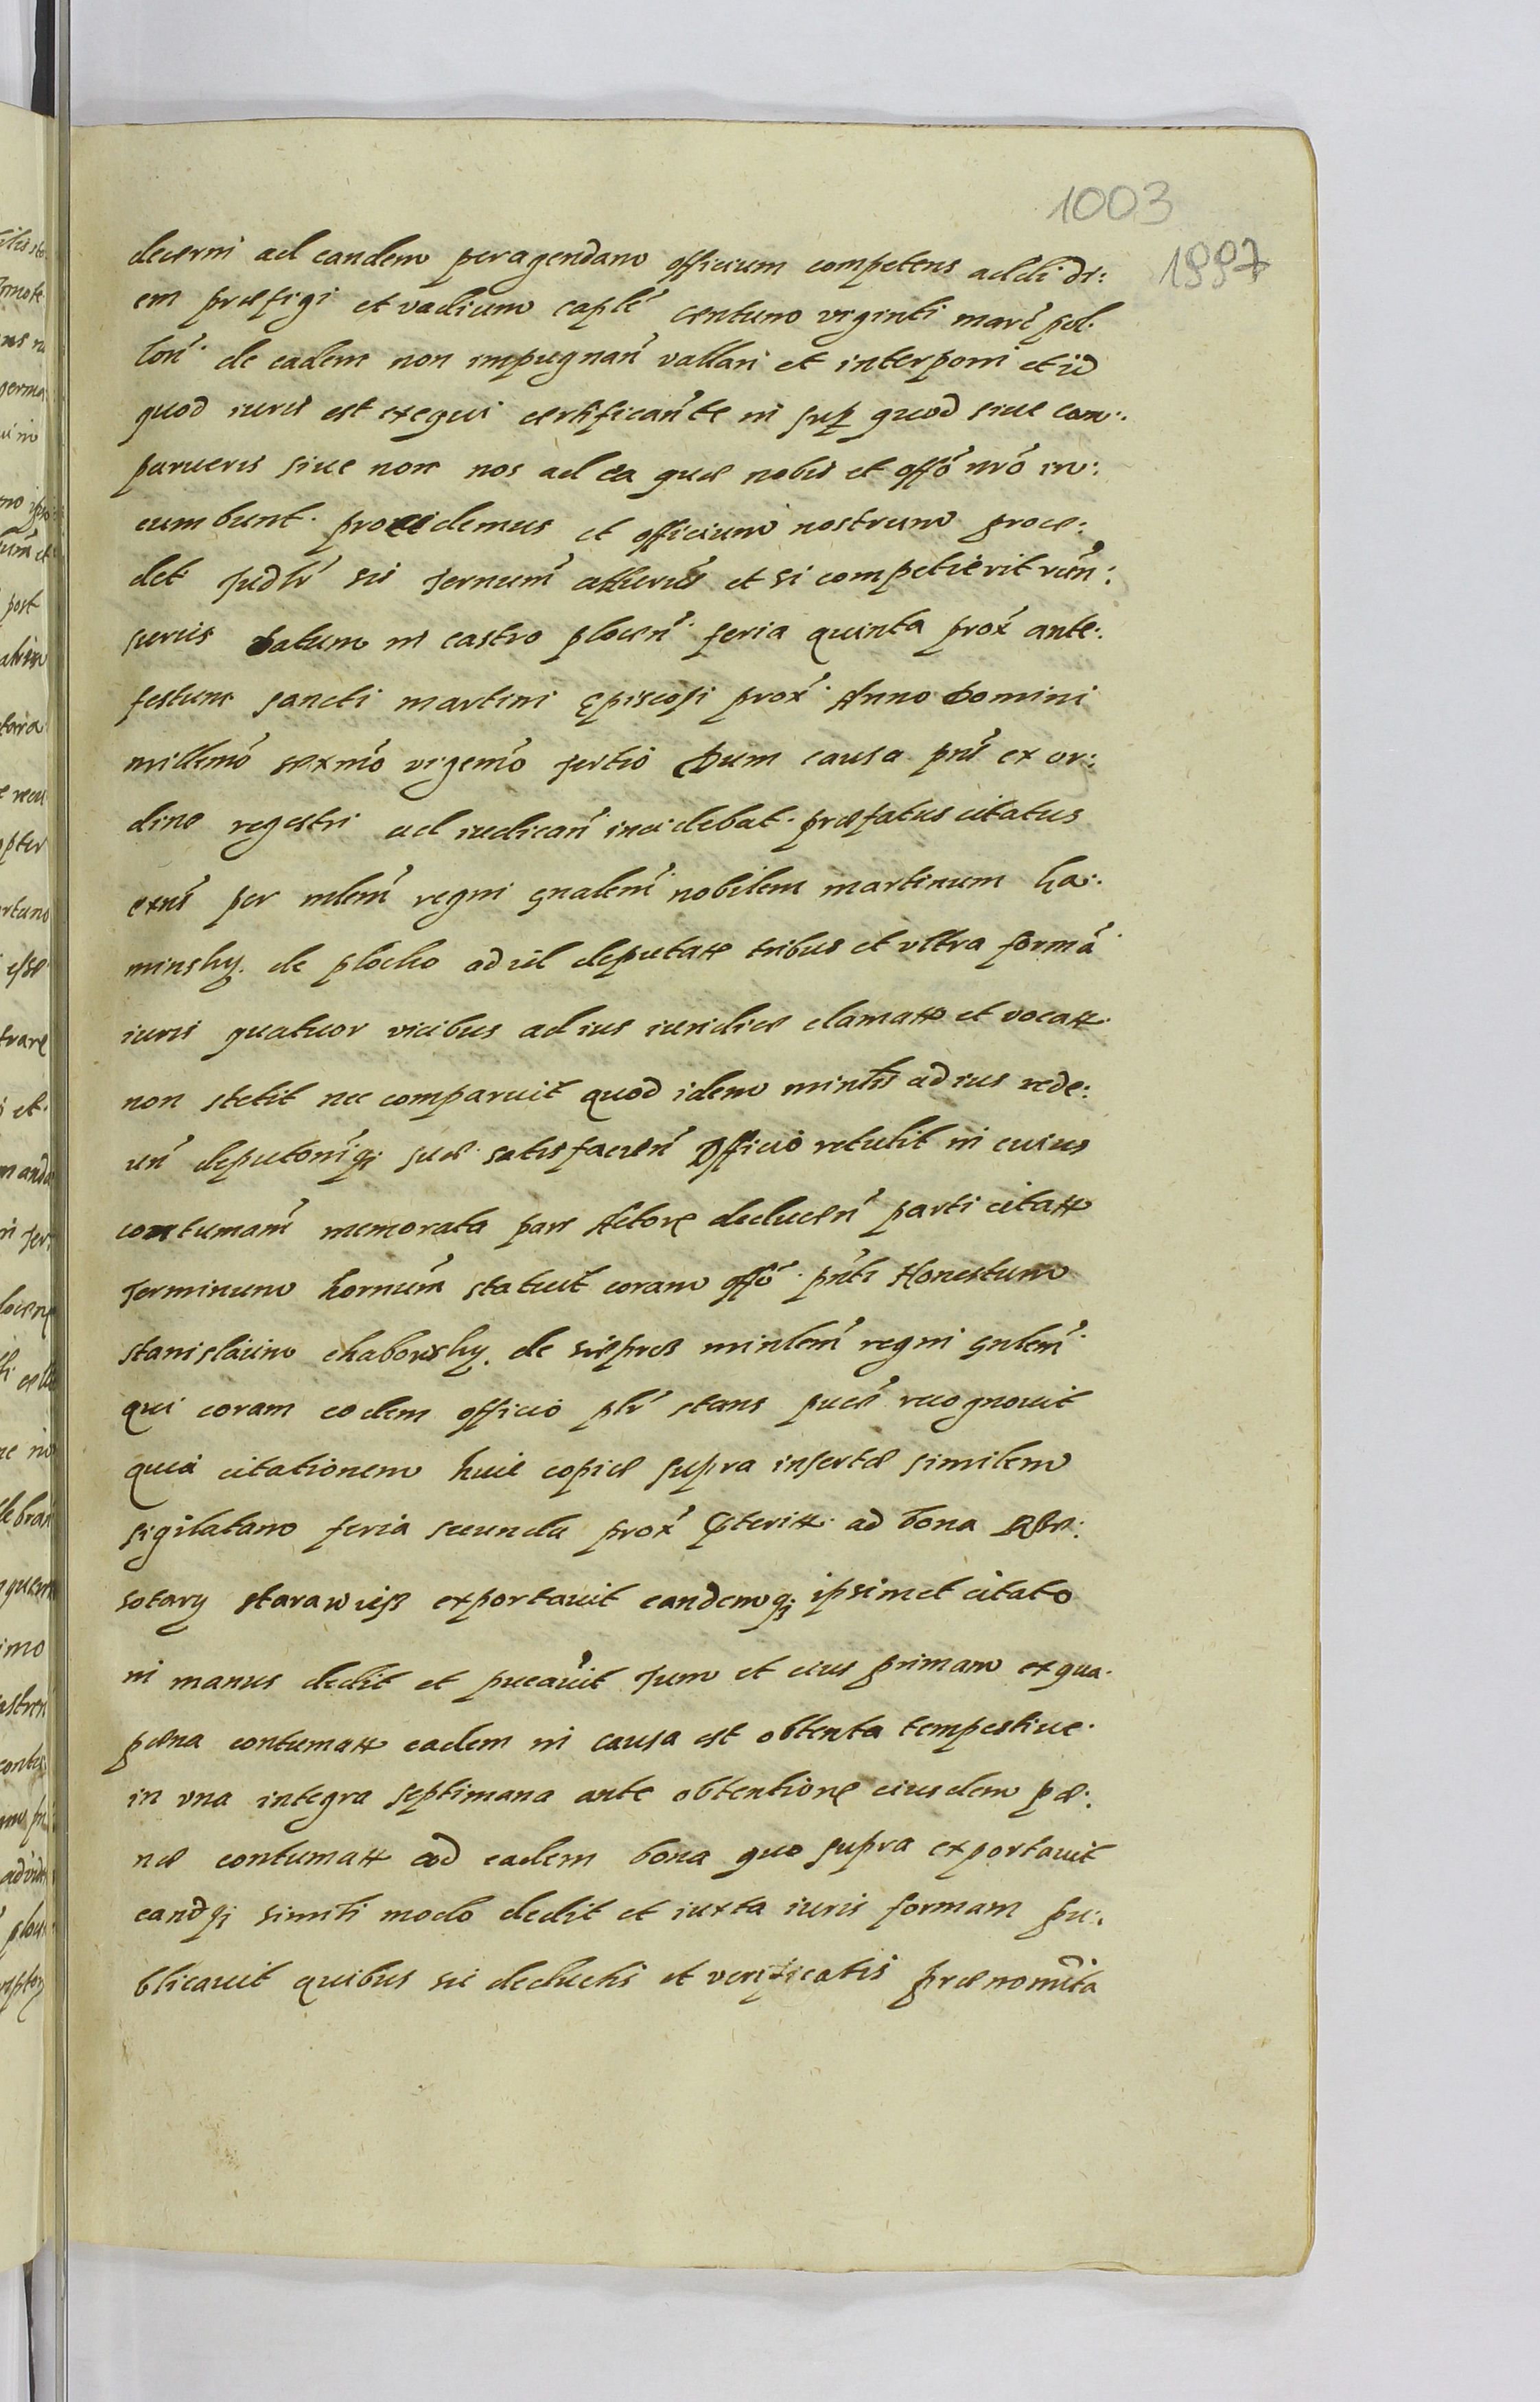 1003
1997
decerni ad eandem peragendam officium competens addi di:
em præfigi et vadium caplē centum viginti marc̄ pol.
loń. de eadem non impugnan̄ vallari et interponi et id
quod iuris est exequi certifican̄te in sup̱ quod siue com:
parueris siue non nos ad ea quæ nobis et offō nrō in:
cumbunt. procedemus et officium nostrum proce:
det Judlr̄ sis Ternum̄ atten̄s et si competierit rūn:
surus Datum in castro plocen̄. feria quinta prox̄ ante:
festum sancti martini Episcopi prox̄. Anno Domini
millemō sexmō vigemō tertio Dum causa pn̄s ex or:
dine regestri ad iudican̄ incidebat. præfatus citatus
extis̄ per mlem̄ regni gnalem̄ nobilem martinum ka:
minsky. de plocko ad id deputatt tribus et vltra formā
iuris quatuor vicibus ad ius iuridice clamatt et vocatt.
non stetit nec comparuit quod idem mintl̄s ad ius rede:
un̄ deputoni̓q; suæ satisfacien̄ Officio retulit in cuius
contumam̄ memorata pars Actorę deducen̄ parti citatt
Terminum hornum̄ statuit coram offō. pn̄ti Honestum
stanislaum chabowsky. de siepres minlem̄ regni gnlem̄.
qui coram eodem officio plr̄ stans pucē recognouit
quia citationem huic copiæ supra insertæ similem
sigilatam feria secunda prox̄ p̱teritt. ad bona
starawiess exportauit eandemq; ipsimet citato
in manus dedit et pucauit Tum et eius primam ex qua.
pæna contumatt eadem in causa est obtenta tempestiue.
in vna integra septimana ante obtentionę eiusdem pæ:
næ contumatt ad eadem bona quo supra exportauit
eandq; simili modo dedit et iuxta iuris formam pu:
blicauit quibus sic deductis et verificatis prænomīta